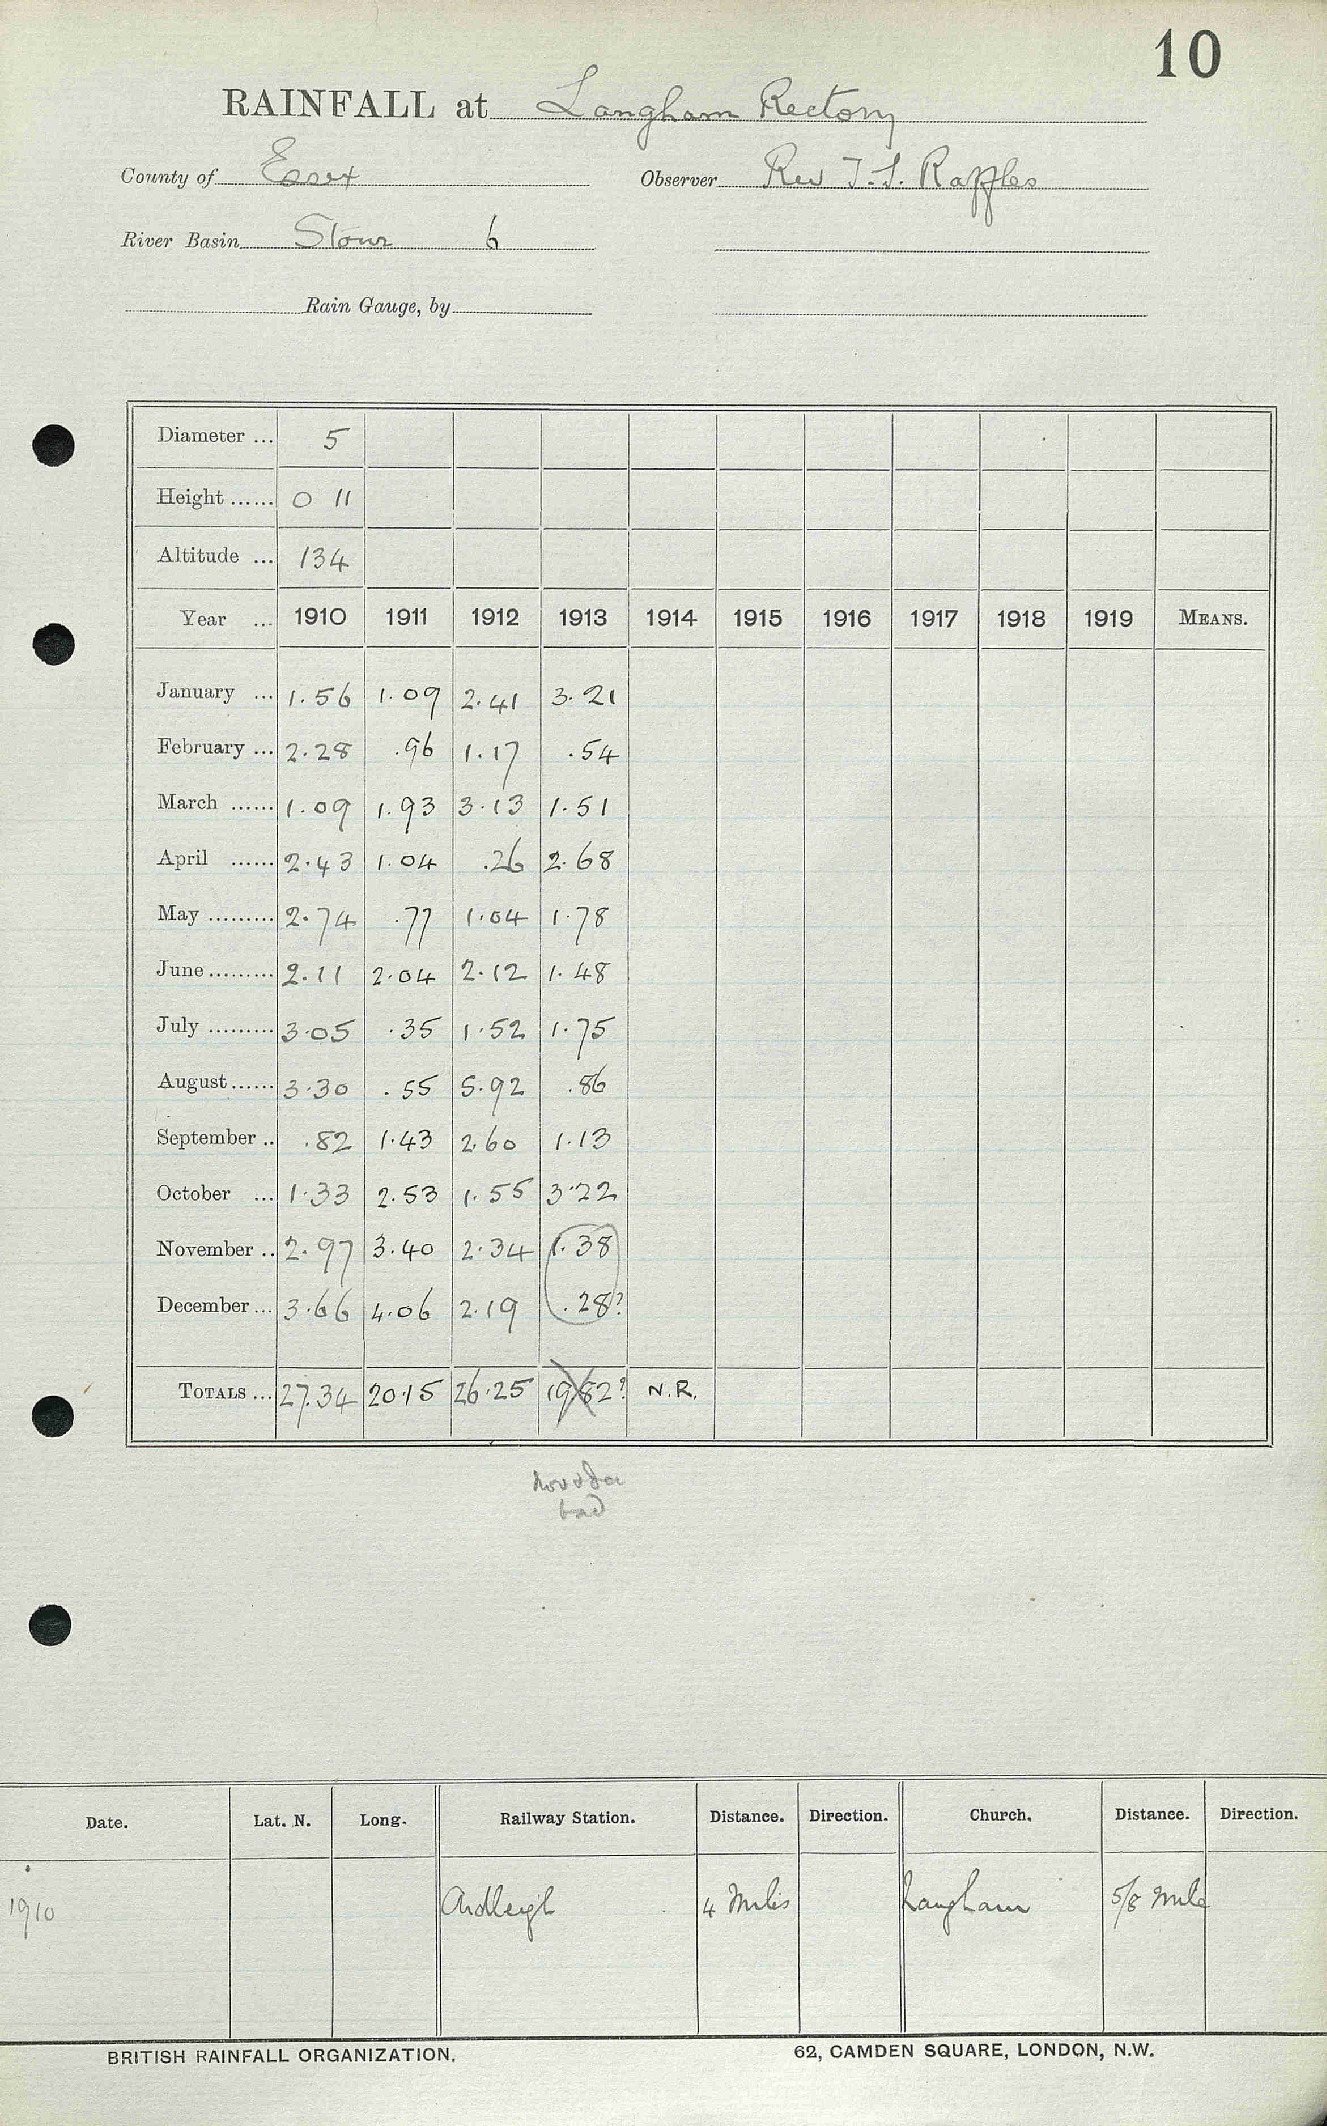 10
RAINFALL at Langham Rectory
County of Essex Observer Rev T. S. Raffles
River Basin Stour 6
Rain Gauge, by
Diameter ... 5
Height ...... 0 11
Altitude ... 134
Year ... 1910 1911 1912 1913 1914 1915 1916 1917 1918 1919 MEANS.
January ... 1.56 1.09 2.41 3.21
February ... 2.28 .96 1.17 .54
March ...... 1.09 1.93 3.13 1.51
April ...... 2.43 1.04 .26 2.68
May ......... 2.74 .77 1.04 1.78
June ......... 2.11 2.04 2.12 1.48
July ......... 3.05 .35 1.52 1.75
August ...... 3.30 .55 5.92 .86
September .. .82 1.43 2.60 1.13
October ... 1.33 2.53 1.55 3.22
November .. 2.97 3.40 2.34 1.38
December ... 3.66 4.06 2.19 .28?
TOTALS ... 27.34 20.15 26.25 19.82? N.R.
bad
Date. Lat. N. Long. Railway Station. Distance. Direction. Church. Distance. Direction.
1910 Ardleigh 4 Miles Langham 5/8 mile
BRITISH RAINFALL ORGANIZATION. 62, CAMDEN SQUARE, LONDON, N.W.